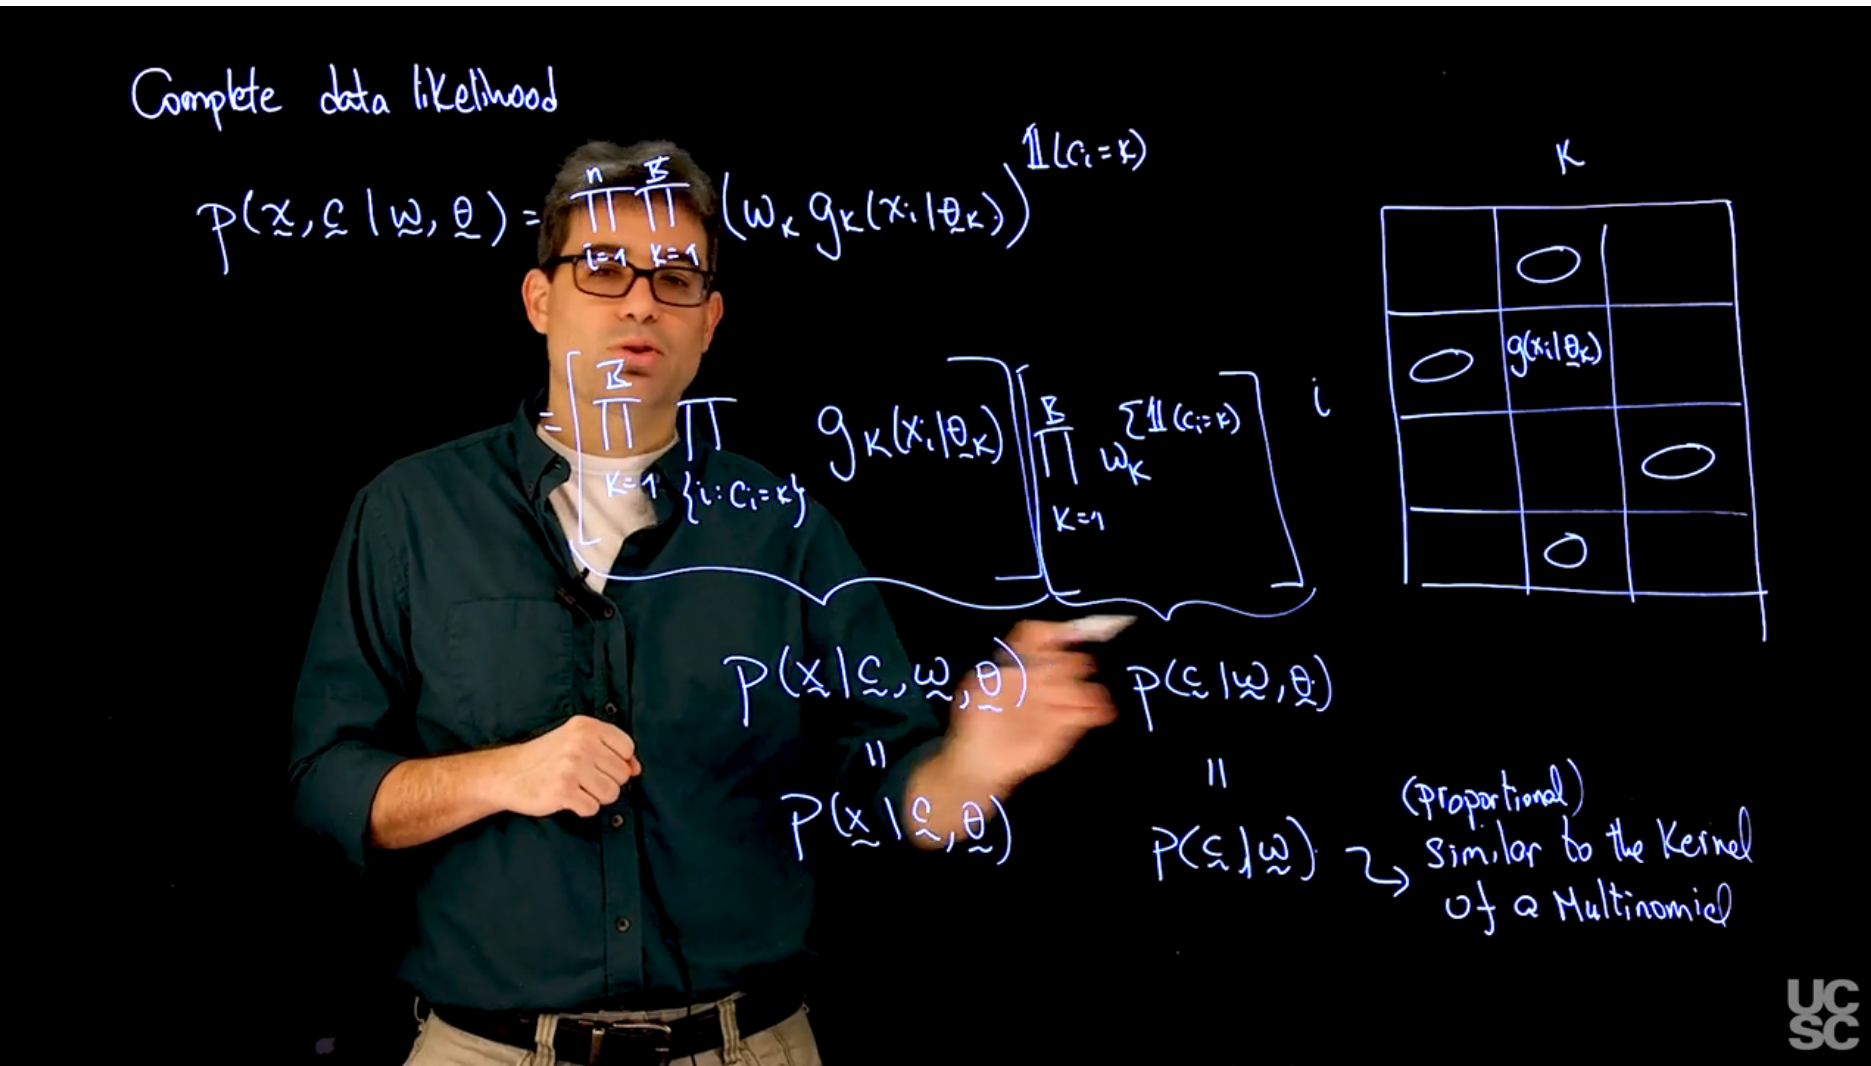 Complete data likelihood
p(x, c | ω, θ) = ∏_{i=1}^{n} ∏_{k=1}^{K} (ω_k g_k(x_i | θ_k))^{𝟙(c_i = k)}
= [∏_{k=1}^{K} ∏_{{i: c_i = k}} g_k(x_i | θ_k)] [∏_{k=1}^{K} ω_k^{Σ𝟙(c_i = k)}]
p(x | c, ω, θ) p(c | ω, θ)
= =
p(x | c, θ) p(c | ω)
(proportional)
similar to the kernel
of a Multinomial
K
i
g(x_i | θ_k)
UC
SC